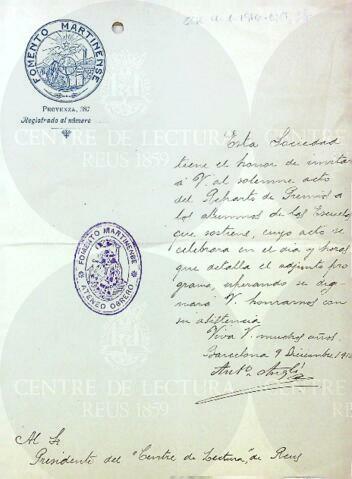 FOMENTO MARTINENSE
PROVENZA, 387
Registrado al número
CENTRE DE LECTURA
REUS 1859
Esta Sociedad
tiene el honor de invitar
á V. al solemne acto
del Reharto de Premios a
los alumnos de las Escuelas
que sostiene, cuyo acto se
celebrara en el dia y hora
que detalla el adjunto pro
grama, esperando se dig
nará V. honrarnos con
su asistencia
Viva V. muchos años.
Barcelona 9 Diciembre
FOMENTO MARTINENSE
ATENEO OBRERO
CENTRE DE LECTURA
REUS 1859
Al Sr
Presidente del "Centre de Lectura", de Reus